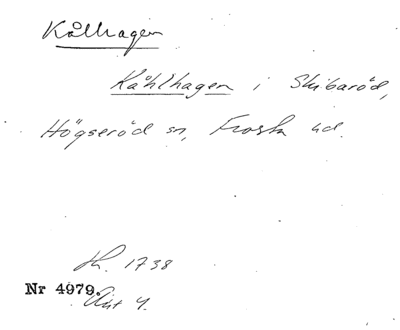 Kålhagen
Kåhlhagen i Skibaröd,
Högseröd sn, Frosta hd.
Jb. 1738
Nr 4979.
Avt 4.